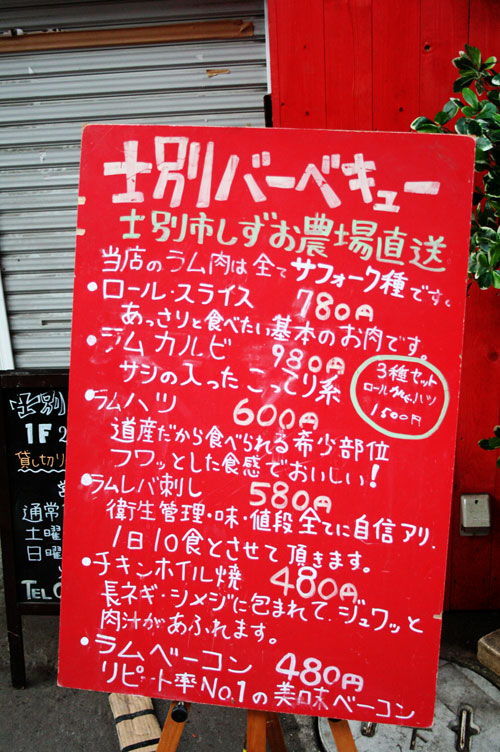 士別バーベキュー
士別市しずお農場直送
当店のラム肉は全てサフォーク種です。
•ロール・スライス 780円
あっさりと食べたい基本のお肉です。
•ラムカルビ 980円
サシの入ったこってり系
3種セット
ロール・カルビ・ハツ
1500円
•ラムハツ 600円
道産だから食べられる希少部位
フワッとした食感でおいしい!
•ラムレバ刺し 580円
衛生管理・味・値段全てに自信アリ.
1日10食とさせて頂きます。
•チキンホイル焼 480円
長ネギ・シメジに包まれて、ジュワッと
肉汁があふれます。
•ラムベーコン 480円
リピート率No.1の美味ベーコン
士別
1F 2
貸し切り
営
通常
土曜
日曜
TEL